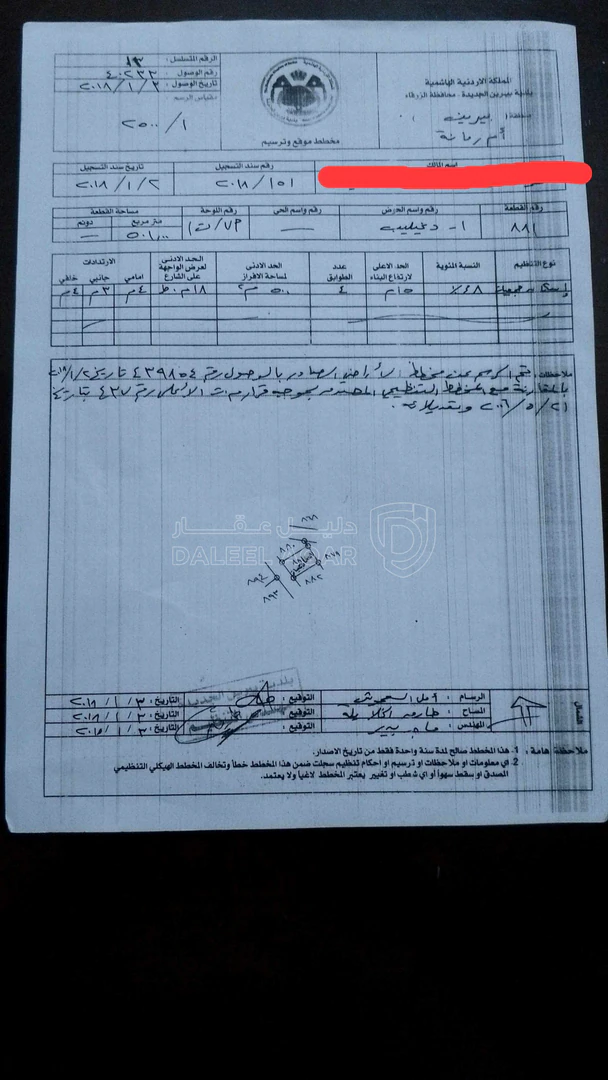 المملكة الاردنية الهاشمية
بلدية بيرين الجديدة - محافظة الزرقاء
منطقة ( بيرين )
أم رمانة
مخطط موقع وترسيم
الرقم المتسلسل : ١٣
رقم الوصول : ٤٠٢٣٣
تاريخ الوصول : ٢٠١٨/١/٣
مقياس الرسم
٢٥٠٠/١
اسم المالك
رقم سند التسجيل
تاريخ سند التسجيل
٢٠١٨/١٥١
٢٠١٨/١/٢
رقم القطعة
رقم واسم الحوض
رقم واسم الحي
رقم اللوحة
مساحة القطعة
متر مربع
دونم
٨٨١
١-
—
٥٠١,٠٠
—
نوع التنظيم
النسبة المئوية
الحد الاعلى لارتفاع البناء
عدد الطوابق
الحد الادنى لمساحة الافراز
الحد الادنى لعرض الواجهة على الشارع
الارتدادات
امامي
جانبي
خلفي
٤٨٪
١٥م
٤
٥٠٠م٢
١٨م.ط
٤م
٣م
٤م
ملاحظات : تم الرسم عن مخطط الأراضي الصادر بالوصول رقم ٤٣٩٨٥٤ تاريخ ٢٠١٨/١/٢
بالمقارنة مع المخطط التنظيمي المصدق بموجب قرار م.ت الأعلى رقم ٤٣٧ بتاريخ
٢٠٠٦/٥/٢١ وتعديلاته .
دليل عقار
DALEEL AQAR
٨٨٠
٨٨١
٨٨٢
٨٩٤
٨٩٣
الشمال
الرسام :
التوقيع :
التاريخ : ٢٠١٨/١/٣
المساح :
التوقيع :
التاريخ : ٢٠١٨/١/٣
المهندس :
التوقيع :
التاريخ :
ملاحظة هامة : 1. هذا المخطط صالح لمدة سنة واحدة فقط من تاريخ الاصدار.
2. اي معلومات او ملاحظات او ترسيم او احكام تنظيم سجلت ضمن هذا المخطط خطأ وتخالف المخطط الهيكلي التنظيمي
المصدق او سقط سهواً او اي شطب او تغيير يعتبر المخطط لاغياً ولا يعتمد.